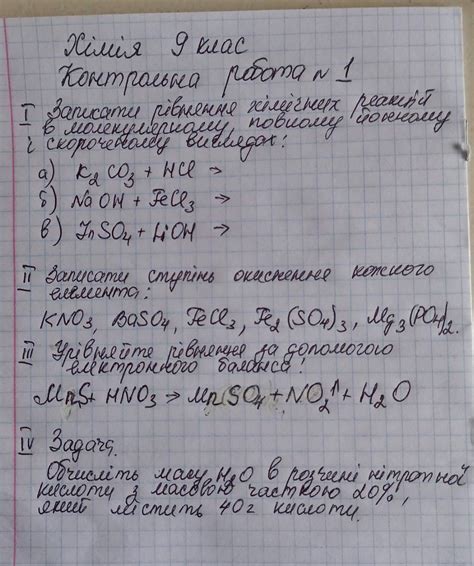 Хімія 9 клас
Контрольна робота №1
I Записати рівняння хімічних реакцій
в молекулярному, повному йонному
і скороченому виглядах:
а) K₂CO₃ + HCl →
б) NaOH + FeCl₃ →
в) ZnSO₄ + LiOH →
II Записати ступінь окиснення кожного
елемента:
KNO₃, BaSO₄, FeCl₃, Fe₂(SO₄)₃, Mg₃(PO₄)₂.
III Урівняйте рівняння за допомогою
електронного баланса:
MnS + HNO₃ → MnSO₄ + NO₂↑ + H₂O
IV Задача.
Обчисліть масу H₂O в розчині нітратної
кислоти з масовою часткою 20%,
який містить 40г кислоти.